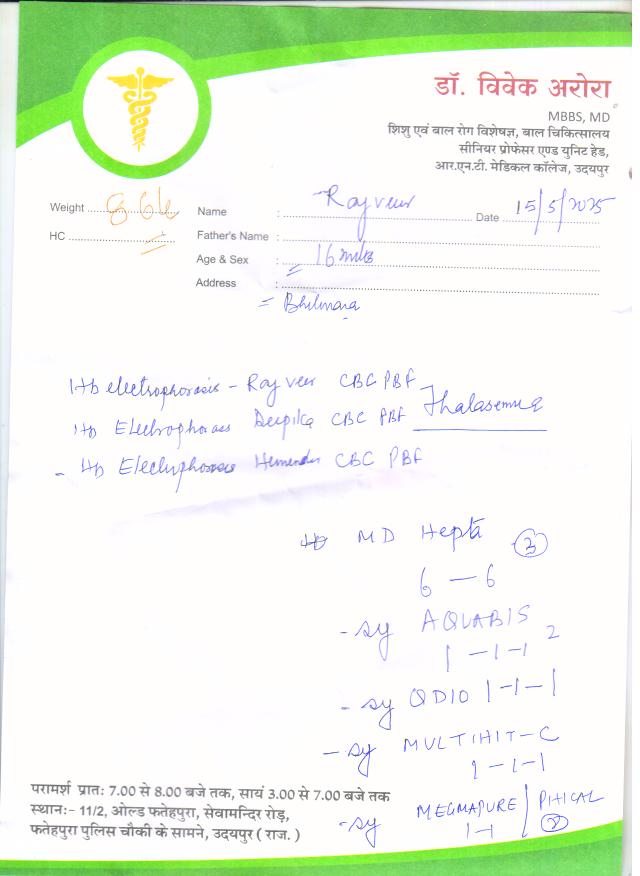 डॉ. विवेक अरोरा
MBBS, MD
शिशु एवं बाल रोग विशेषज्ञ, बाल चिकित्सालय
सीनियर प्रोफेसर एण्ड युनिट हेड,
आर.एन.टी. मेडिकल कॉलेज, उदयपुर
Weight
Name : Rajveer Date 15/5/2025
HC
Father's Name :
Age & Sex : 16 mths
Address :
= Bhilwara
Hb electrophorasis - Rajveer CBC PBF
Hb Electrophoraes Deepika CBC PBF Thalasemia
- Hb Electrophorasis Hemender CBC PBF
MD Hepta 3
6 - 6
- sy AQUABIS 2
1 - 1 - 1
- sy QDIO 1-1-1
- sy MULTIHIT-C
1 - 1 - 1
- sy MEGMAPURE / PIHICAL
1-1
परामर्श प्रातः 7.00 से 8.00 बजे तक, सायं 3.00 से 7.00 बजे तक
स्थानः- 11/2, ओल्ड फतेहपुरा, सेवामन्दिर रोड़,
फतेहपुरा पुलिस चौकी के सामने, उदयपुर ( राज. )